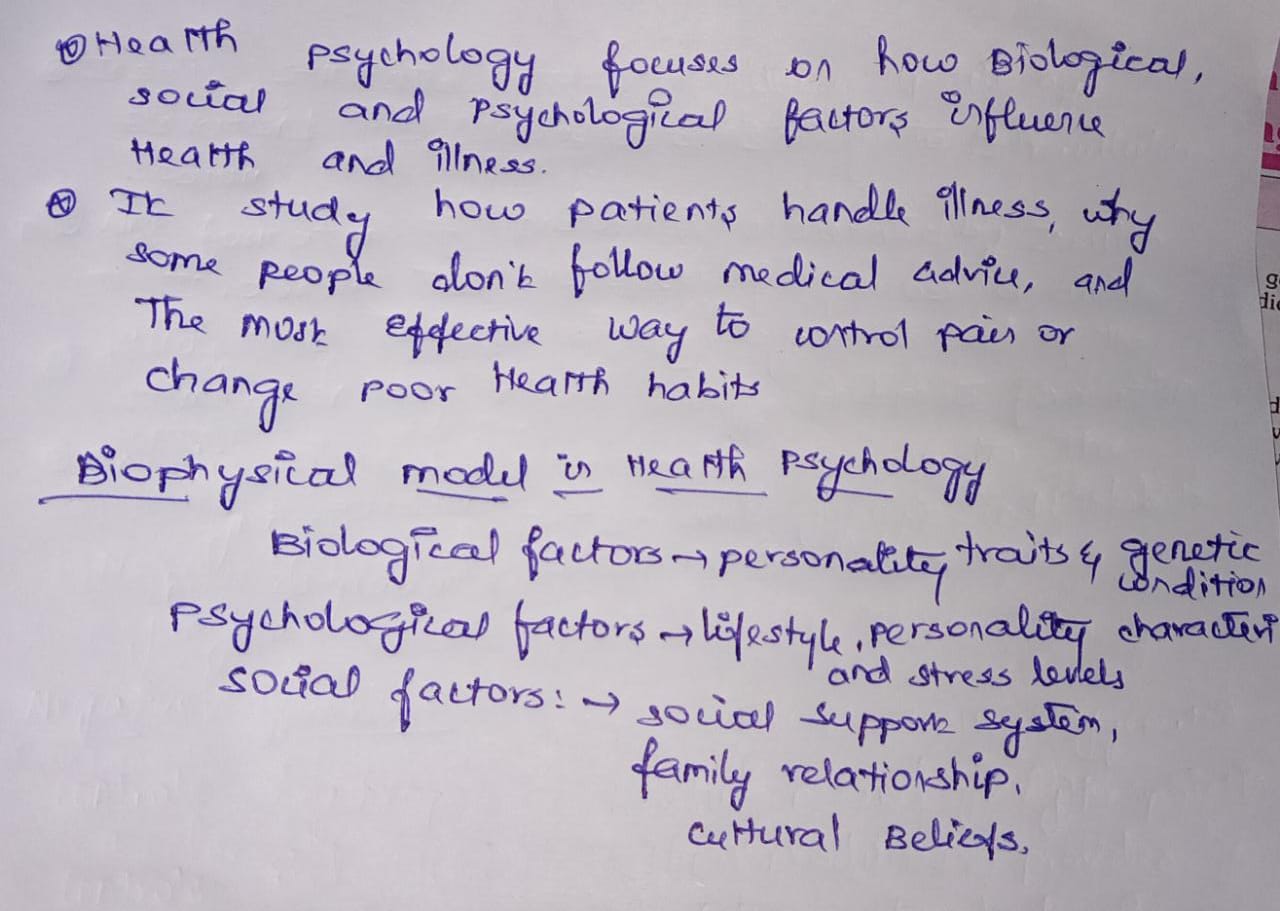 Health psychology focuses on how Biological,
social and Psychological factors influence
Health and illness.
It study how patients handle illness, why
some people don't follow medical advice, and
The most effective way to control pain or
change poor Health habits
Biophysical model in Health Psychology
Biological factors → personality traits & genetic
condition
Psychological factors → lifestyle, personality characteri
and stress levels
social factors: → social support system,
family relationship,
cultural Beliefs,